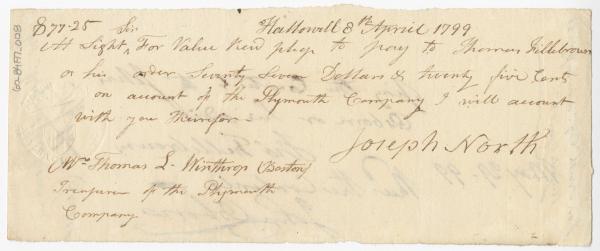 $77-25 Sir Hallowell 8th April 1799
At Sight, For Value Recd please to pay to Thomas Fillebrown
or his order Seventy Seven Dollars & twenty five Cents
on account of the Plymouth Company I will account
with you therefor
Joseph North
Mr Thomas L. Winthrop (Boston)
Treasurer of the Plymouth
Company